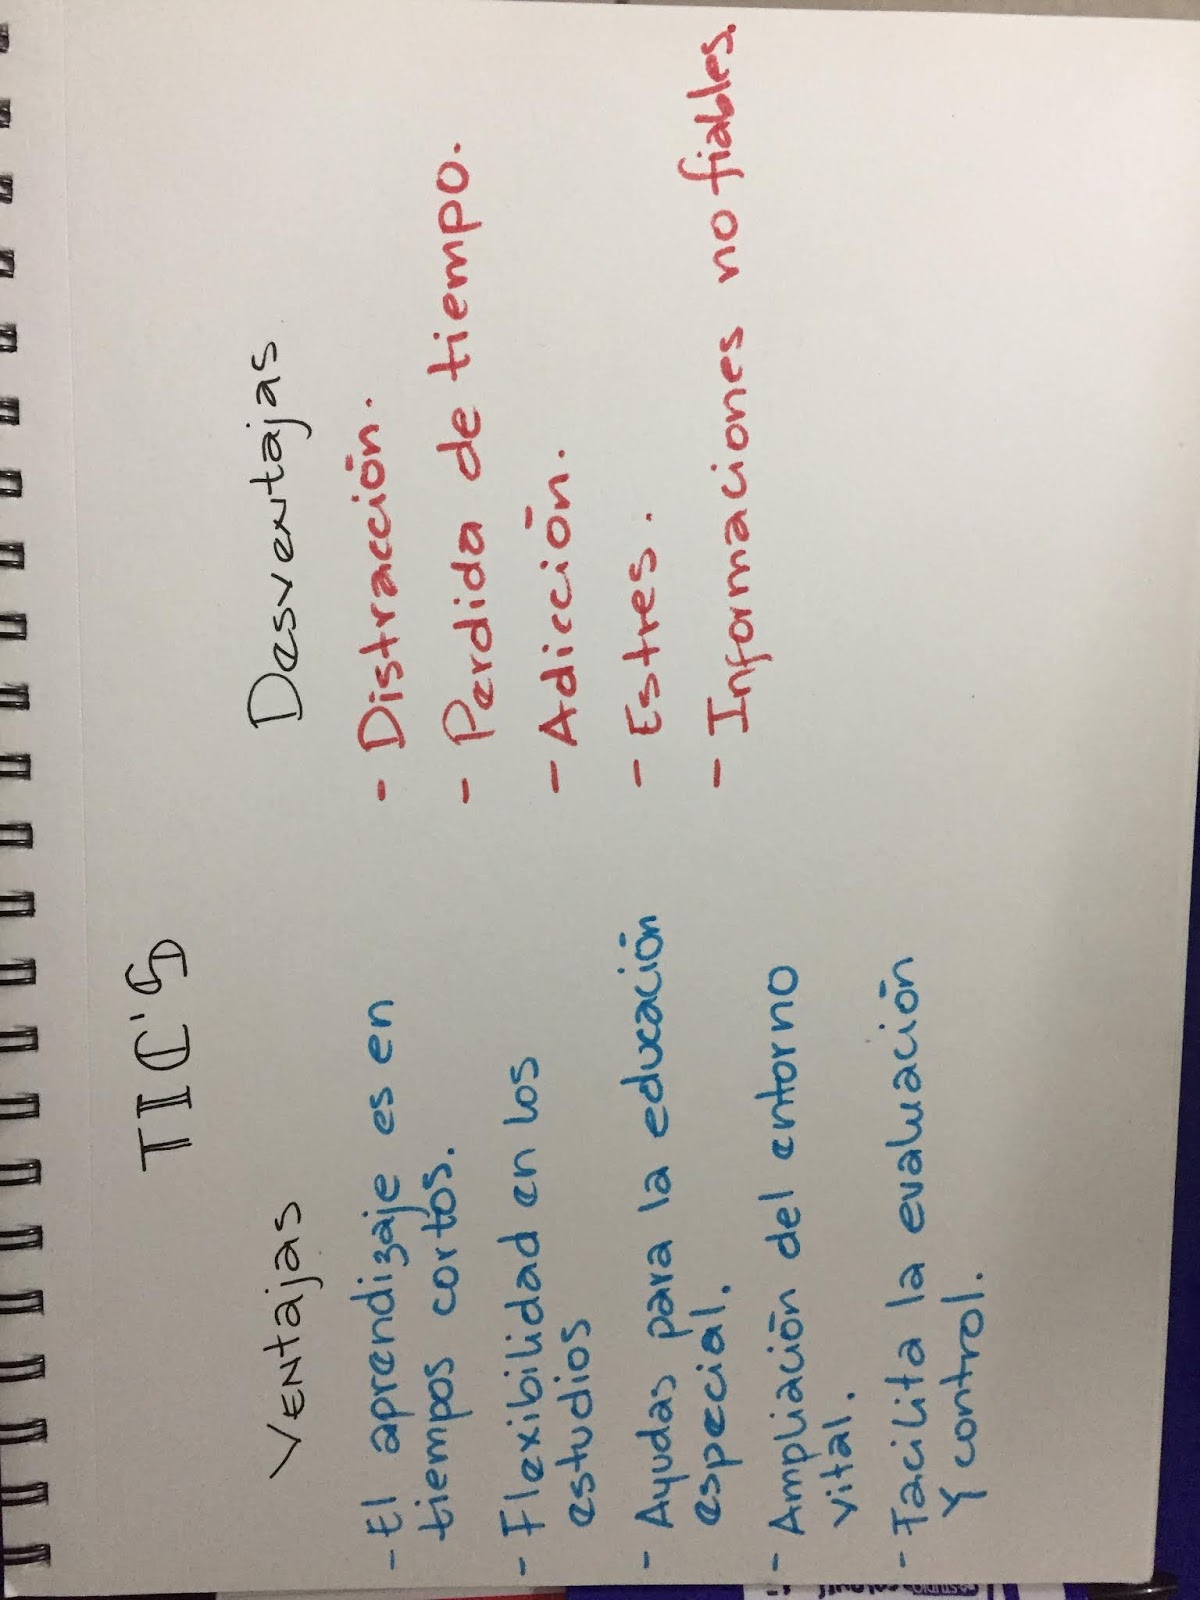 TIC'S
VENtajas
- El aprendizaje es en
tiempos cortos.
- Flexibilidad en los
estudios
- Ayudas para la educación
especial.
- Ampliación del entorno
vital.
- Facilita la evaluación
y control.
Desventajas
- Distracción.
- Perdida de tiempo.
- Adicción.
- Estres.
- Informaciones no fiables.